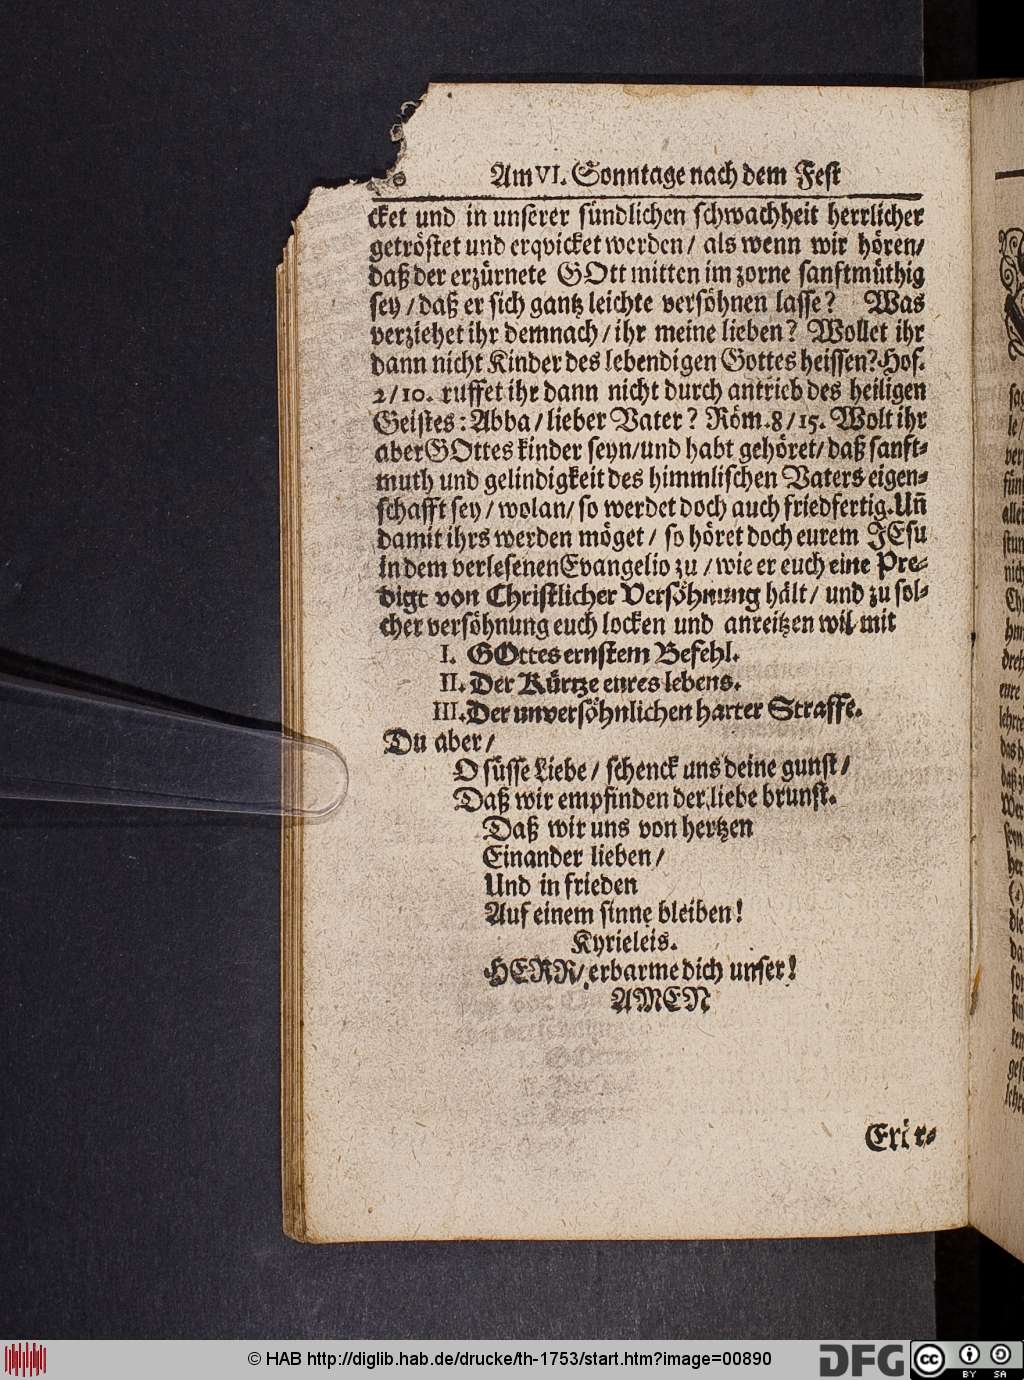 Am VI. Sonntage nach dem Fest
cket und in unserer sündlichen schwachheit herrlicher
getröstet und erqvicket werden / als wenn wir hören /
daß der erzürnete GOtt mitten im zorne sanftmüthig
sey / daß er sich gantz leichte versöhnen lasse? Was
verziehet ihr demnach / ihr meine lieben? Wollet ihr
dann nicht Kinder des lebendigen Gottes heissen? Hos.
2 / 10. ruffet ihr dann nicht durch antrieb des heiligen
Geistes: Abba / lieber Vater? Röm. 8 / 15. Wolt ihr
aber GOttes kinder seyn / und habt gehöret / daß sanft-
muth und gelindigkeit des himmlischen Vaters eigen-
schafft sey / wolan / so werdet doch auch friedfertig. Un̄
damit ihrs werden möget / so höret doch eurem JEsu
in dem verlesenen Evangelio zu / wie er euch eine Pre-
digt von Christlicher Versöhnung hält / und zu sol-
cher versöhnung euch locken und anreitzen wil mit
I. GOttes ernstem Befehl.
II. Der Kürtze eures lebens.
III. Der unversöhnlichen harter Straffe.
Du aber /
O süsse Liebe / schenck uns deine gunst /
Daß wir empfinden der liebe brunst.
Daß wir uns von hertzen
Einander lieben /
Und in frieden
Auf einem sinne bleiben!
Kyrieleis.
HERR / erbarme dich unser!
AMEN
© HAB http://diglib.hab.de/drucke/th-1753/start.htm?image=00890
DFG
cc
BY SA